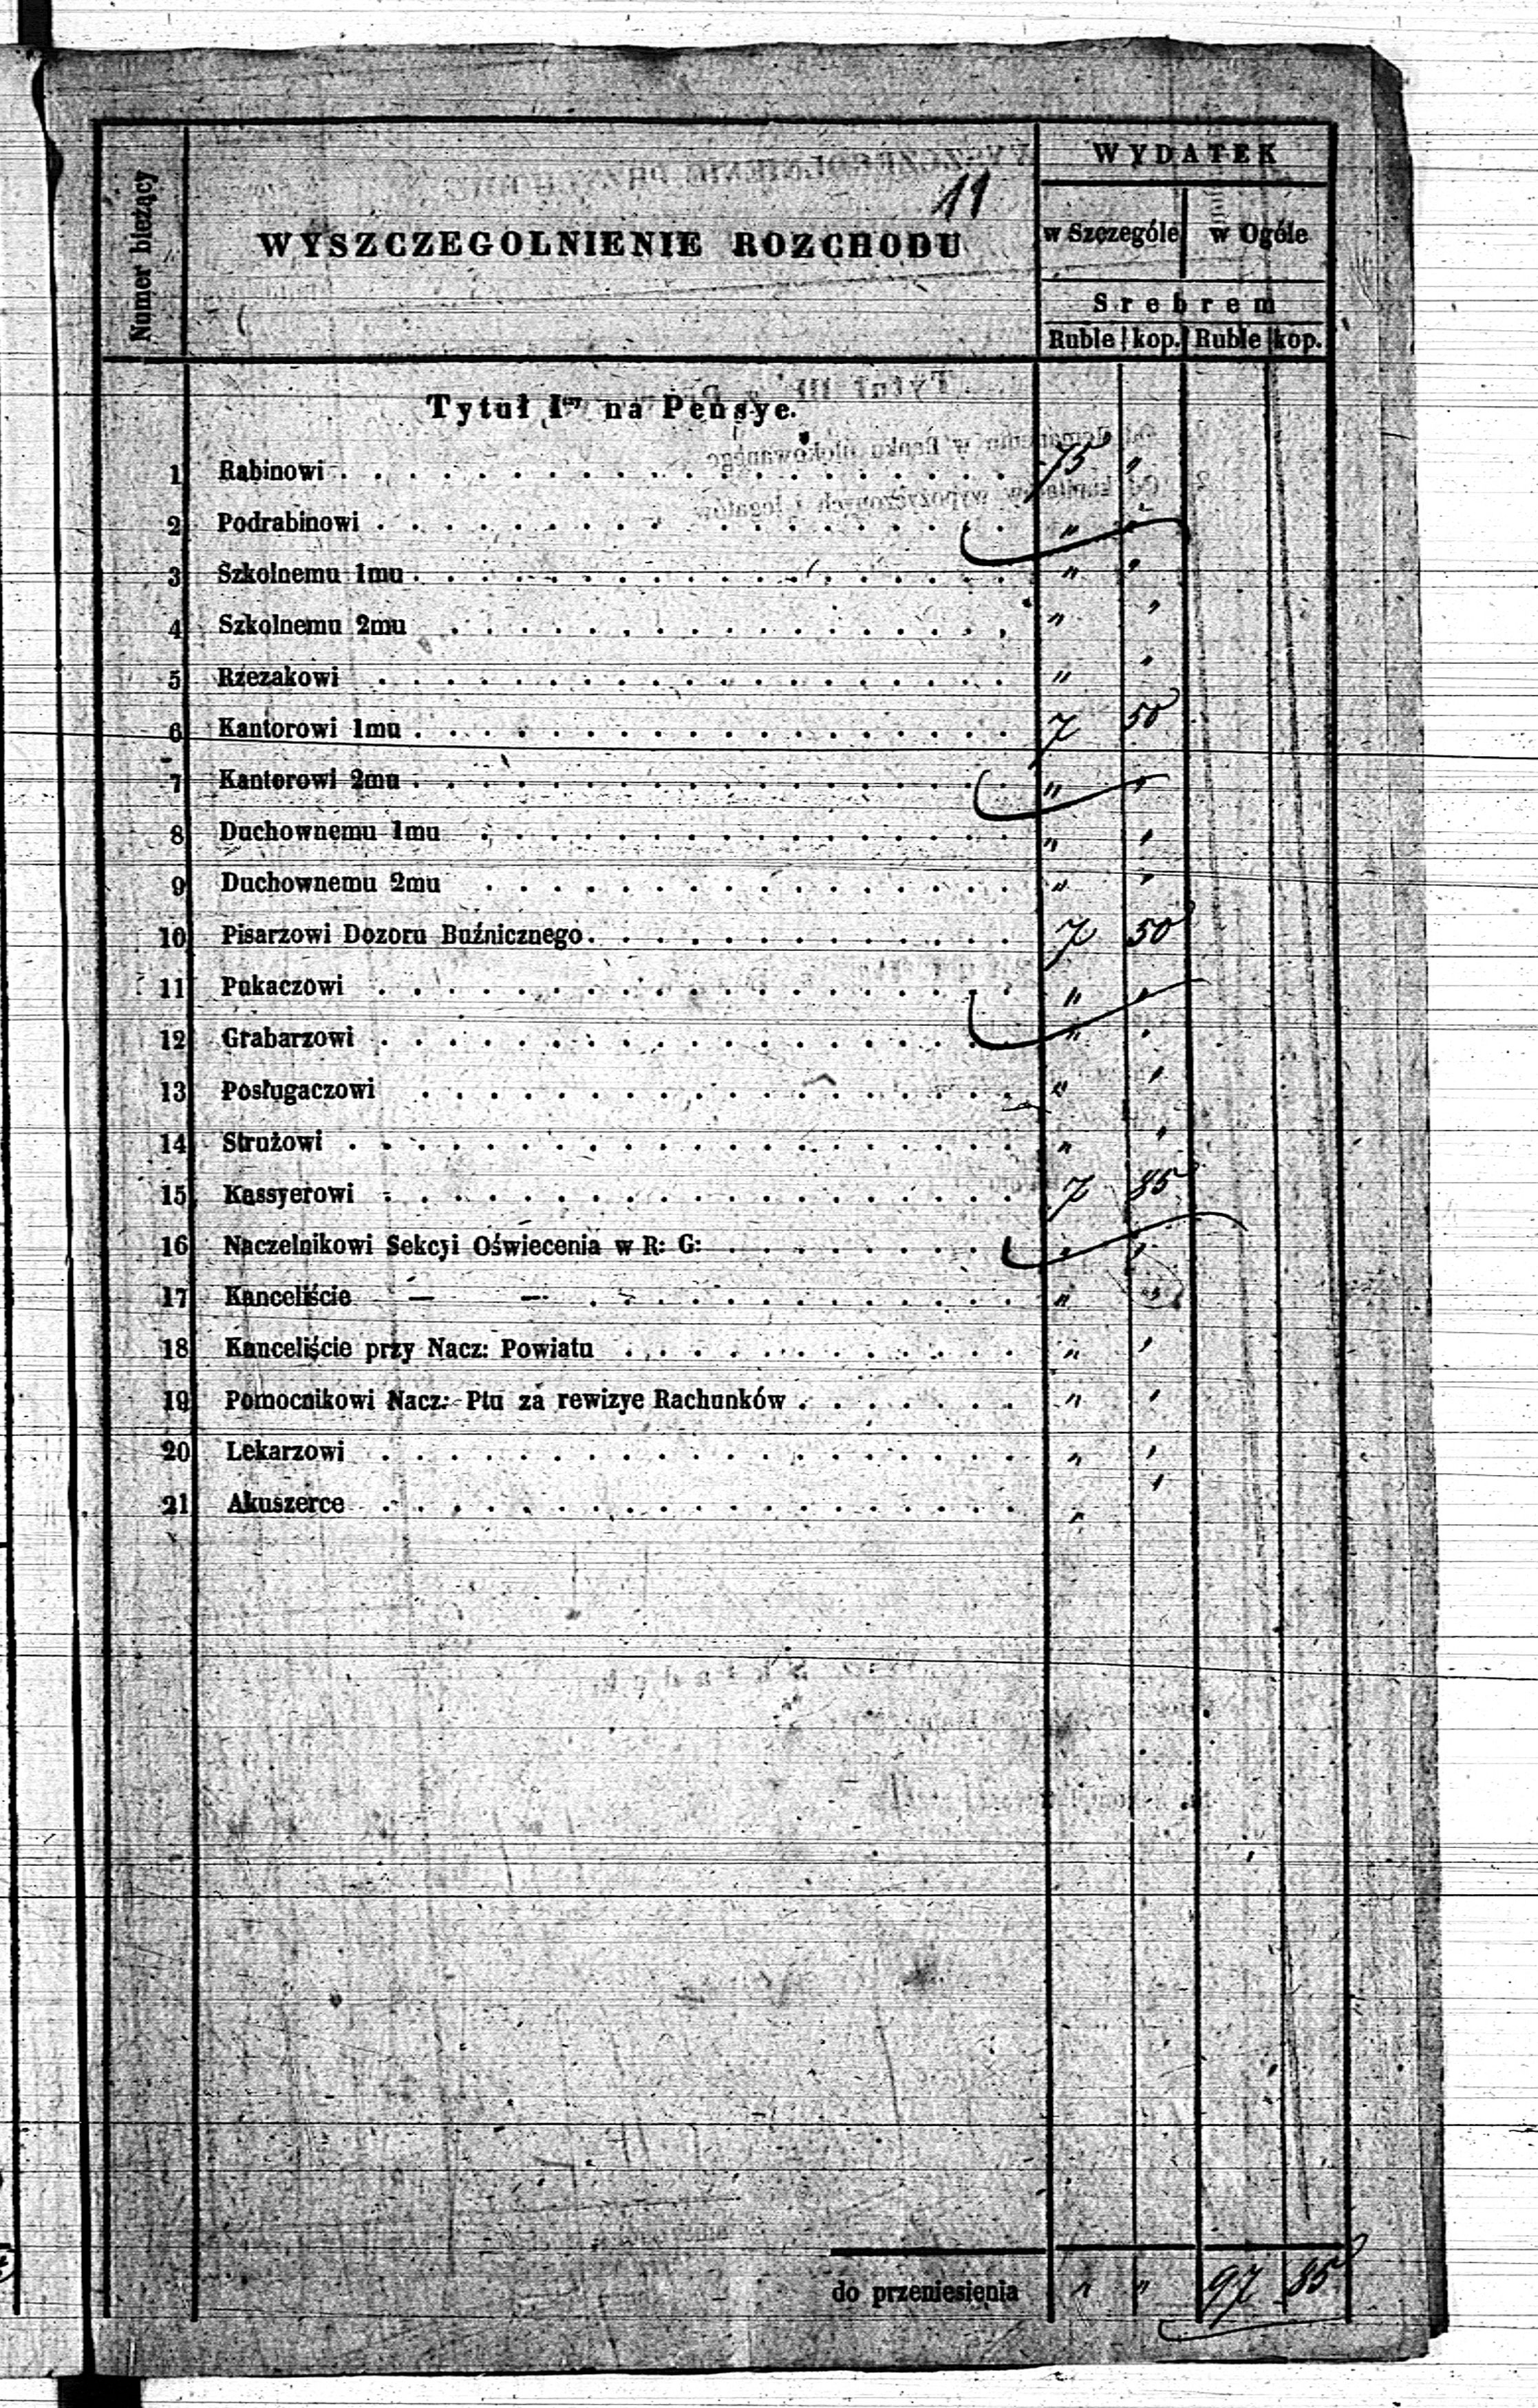 11
Numer bieżący
WYSZCZEGOLNIENIE ROZCHODU
WYDATEK
w Szczególe w Ogóle
Srebrem
Ruble kop. Ruble kop.
Tytuł Iszy na Pensye.
1 Rabinowi . . . . . . . . . . . . . . . . . . . . 75 "
2 Podrabinowi . . . . . . . . . . . . . . . . . . . " "
3 Szkolnemu 1mu . . . . . . . . . . . . . . . . . . " "
4 Szkolnemu 2mu . . . . . . . . . . . . . . . . . " "
5 Rzezakowi . . . . . . . . . . . . . . . . . . . " "
6 Kantorowi 1mu . . . . . . . . . . . . . . . . . . 7 50
7 Kantorowi 2mu . . . . . . . . . . . . . . . . . . " "
8 Duchownemu 1mu . . . . . . . . . . . . . . . . " "
9 Duchownemu 2mu . . . . . . . . . . . . . . . . " "
10 Pisarzowi Dozoru Buźnicznego . . . . . . . . . . . . . 7 50
11 Pukaczowi . . . . . . . . . . . . . . . . . . . " "
12 Grabarzowi . . . . . . . . . . . . . . . . . . . " "
13 Posługaczowi . . . . . . . . . . . . . . . . . . " "
14 Strużowi . . . . . . . . . . . . . . . . . . . . " "
15 Kassyerowi . . . . . . . . . . . . . . . . . . . 7 85
16 Naczelnikowi Sekcyi Oświecenia w R: G: . . . . . . . . . " "
17 Kanceliście — — . . . . . . . . . . . . . " "
18 Kanceliście przy Nacz: Powiatu . . . . . . . . . . . . " "
19 Pomocnikowi Nacz: Ptu za rewizye Rachunków . . . . . . . " "
20 Lekarzowi . . . . . . . . . . . . . . . . . . . " "
21 Akuszerce . . . . . . . . . . . . . . . . . . . " "
do przeniesienia " " 97 85